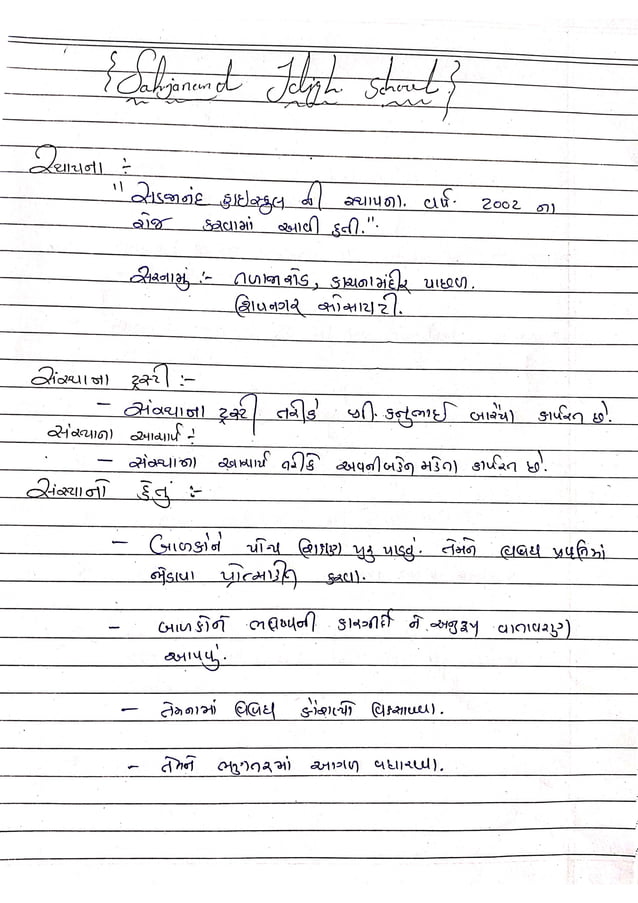 { Sahjanand High School. }
સ્થાપના :-
"સહજાનંદ હાઇસ્કુલ ની સ્થાપના વર્ષ 2002 ના
રોજ કરવામાં આવી હતી."
સરનામું :- તળાજા રોડ, કાચના મંદીર પાછળ.
શિવનગર સોસાયટી.
સંસ્થાના ટ્રસ્ટી :-
- સંસ્થાના ટ્રસ્ટી તરીકે શ્રી. કનુભાઈ બારૈયા કાર્યરત છે.
સંસ્થાના આચાર્ય :-
- સંસ્થાના આચાર્ય તરીકે અવનીબહેન મહેતા કાર્યરત છે.
સંસ્થાનો હેતું :-
- બાળકોને યોગ્ય શિક્ષણ પુરુ પાડવું. તેમને વિવિધ પ્રવૃતિમાં
જોડાવા પ્રોત્સાહીત કરવા.
- બાળકોને ભવિષ્યની કારકીર્દી ને અનુરૂપ વાતાવરણ
આપવું.
- તેમનામાં વિવિધ કૌશલ્યો વિકસાવવા.
- તેમને ભણતરમાં આગળ વધારવા.